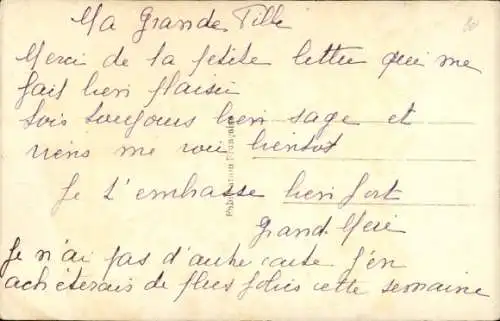 Ma Grande Fille
Merci de la petite lettre qui me
fait bien plaisir
Sois toujours bien sage et
viens me voir bientot
Je t'embrasse bien fort
Grand Mère
Je n'ai pas d'autre carte j'en
achèterais de plus jolies cette semaine
Fabrication Française